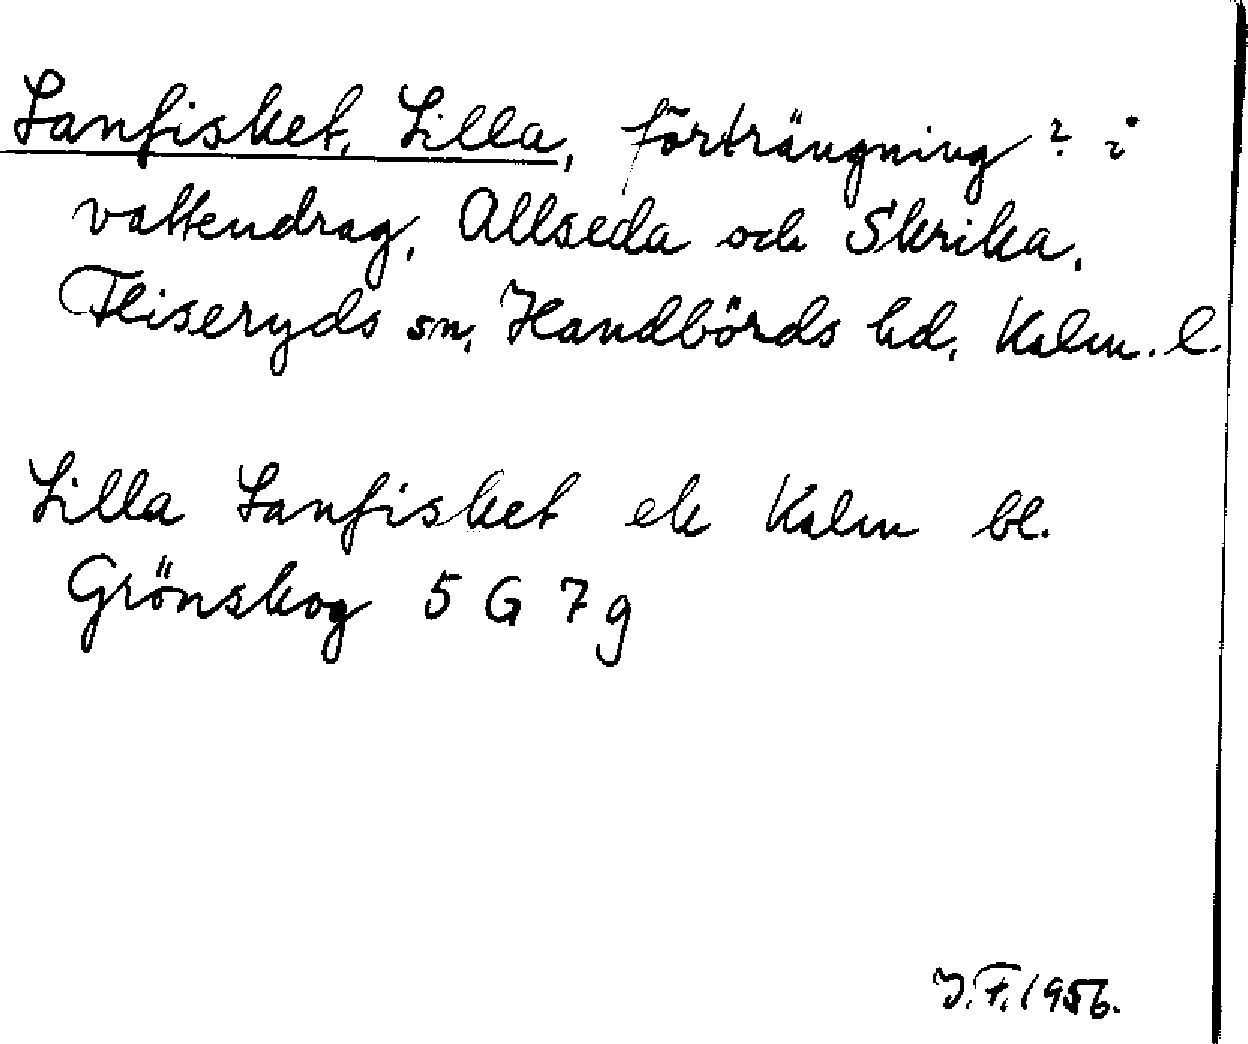 Lanfisket, Lilla, förträngning? i
vattendrag, Allseda och Skrika,
Fliseryds sn, Handbörds hd, Kalm. l.
Lilla Lanfisket ek Kalm bl.
Grönskog 5 G 7 g
J.F. 1956.